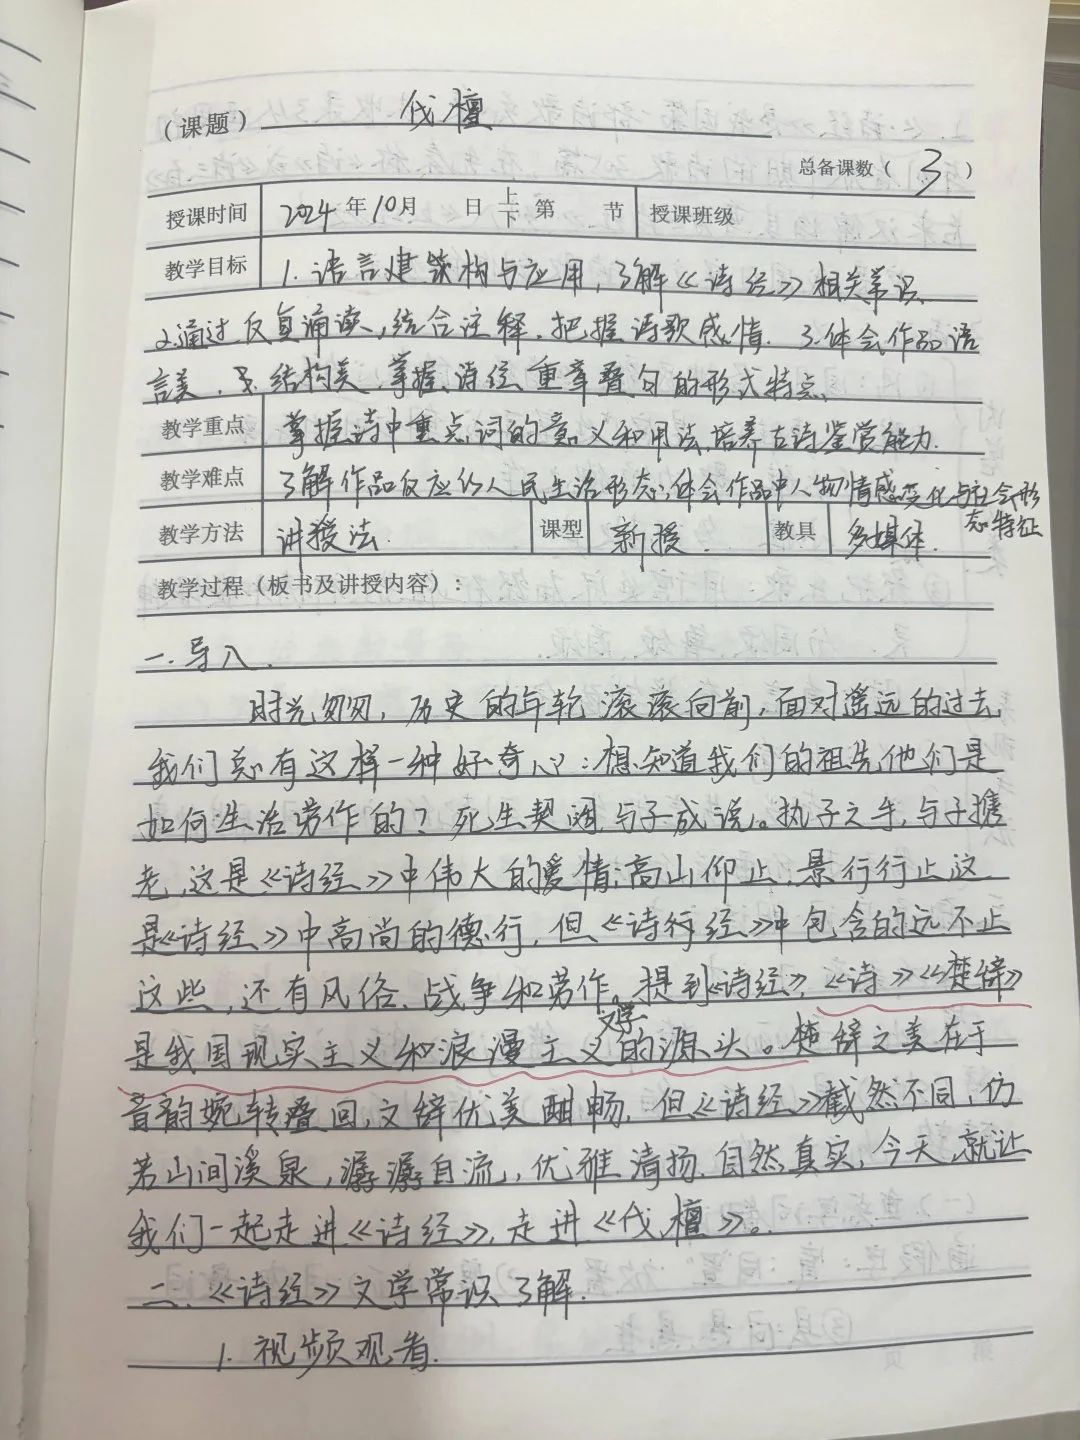 （课题） 伐檀
总备课数（ 3 ）
授课时间 2024年10月 日 上下 第 节 授课班级
教学目标 1.语言建筑构与应用，了解《诗经》相关常识、
2.通过反复诵读，结合注释，把握诗歌感情. 3.体会作品语
言美，结构美，掌握诗经重章叠句的形式特点、
教学重点 掌握诗中重点词的意义和用法，培养古诗鉴赏能力.
教学难点 了解作品反应的人民生活形态，体会作品中人物情感变化与社会形
态特征
教学方法 讲授法. 课型 新授. 教具 多媒体.
教学过程（板书及讲授内容）：
一.导入.
时光匆匆，历史的年轮滚滚向前，面对遥远的过去，
我们总有这样一种好奇心：想知道我们的祖先他们是
如何生活劳作的？死生契阔，与子成说。执子之手，与子携
老，这是《诗经》中伟大的爱情；高山仰止，景行行止这
是《诗经》中高尚的德行，但《诗行经》中包含的远不止
这些，还有风俗、战争和劳作。提到《诗经》，《诗》《楚辞》
是我国现实主义和浪漫主义文学的源头。楚辞之美在于
音韵婉转叠回，文辞优美酣畅，但《诗经》截然不同，仿
若山间溪泉，潺潺自流，优雅清扬，自然真实，今天，就让
我们一起走进《诗经》，走进《伐檀》。
二、《诗经》文学常识了解.
1.视频观看.